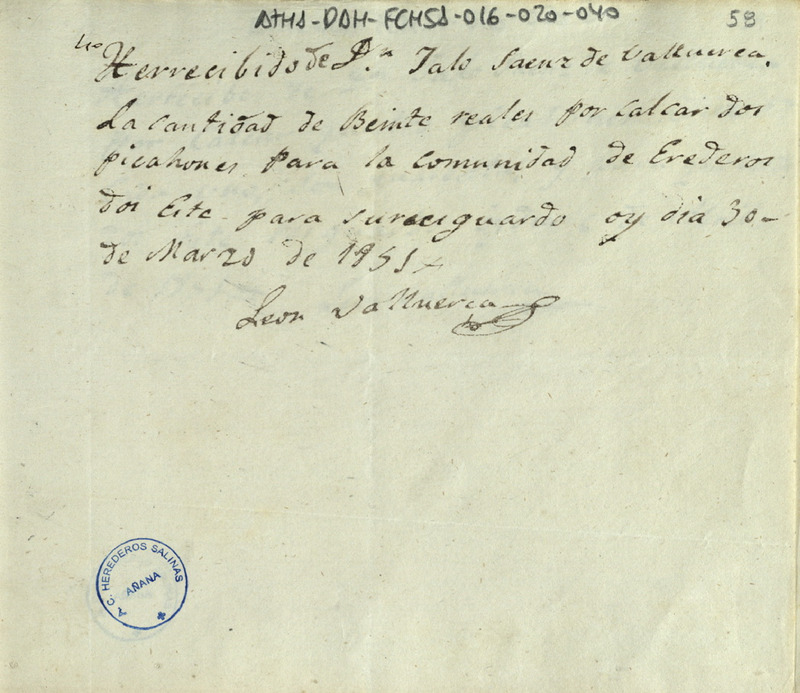 ATHA-DAH-FCHSA-016-020-040
58
Herrecibido de Dn. Talo Saenz de Valluerca.
La cantidad de Beinte reales por calcar dos
picahones para la comunidad de Erederos
doi Este para sureciguardo oy dia 30
de Marzo de 1851
Leon Valluerca
A. C. HEREDEROS SALINAS
AÑANA